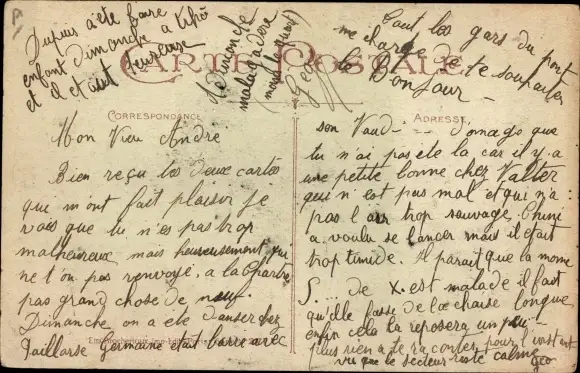 Dupuis a été faire
enfant Dimanche a
et il etait heureuse
Dimanche
malag
mons le quart)
Geo
Tout les gars du pont
me charge de te souhaiter
le Bonjour —
CARTE POSTALE
CORRESPONDANCE
ADRESSE
Mon Vieu André
Bien reçu les deux cartes
qui m ont fait plaisir je
vois que tu n'es pas trop
malheureux mais heureusement qu
ne t'on pas renvoyé a la
pas grand chose de neuf.
Dimanche on a été danser chez
Taillarse Germaine etait barre avec
son Vaud - - - Domage que
tu n'ai pas été la car il y a
une petite bonne chez Valter
qui n est pas mal et qui n'a
pas l air trop sauvage.
a voulu se lancer mais il était
trop timide. Il parait que la mome
S... de X. est malade il faut
qu'elle fasse de la chaise longue
enfin cela la reposera un peu —
plus rien a te raconter pour l instant
vu que le secteur reste calme
Geo